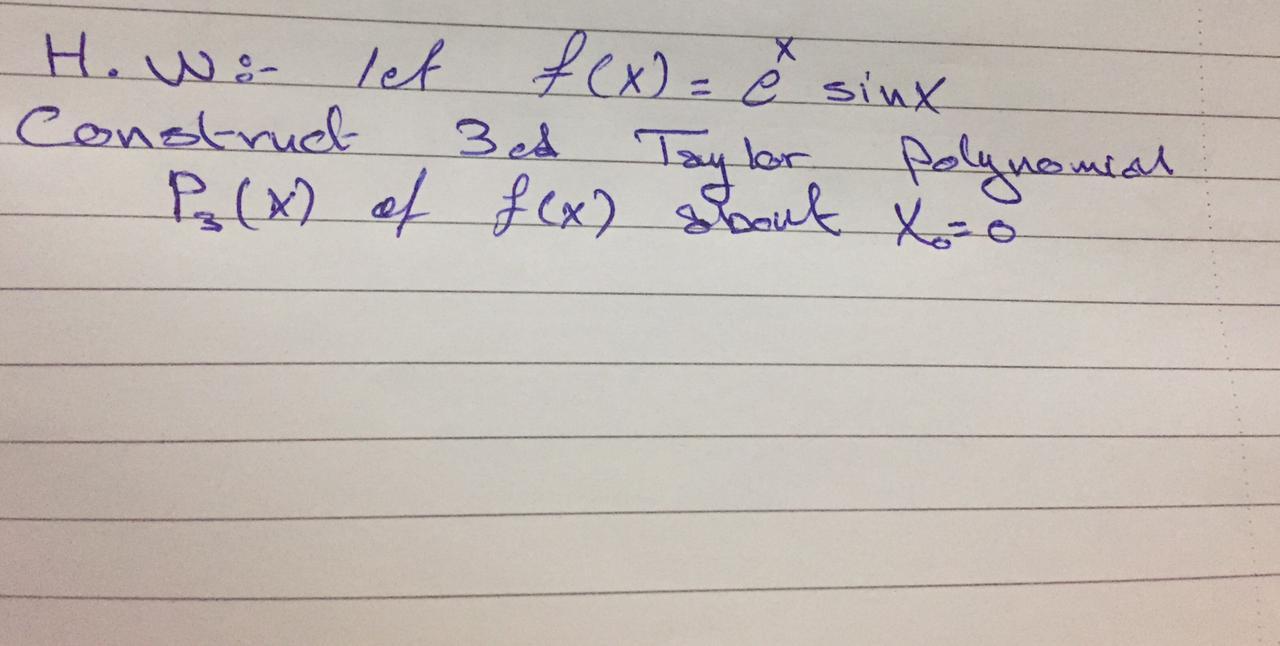 H.W:- let f(x) = e^x sinx
Construct 3ed Taylor polynomial
P₃(x) of f(x) about X₀=0